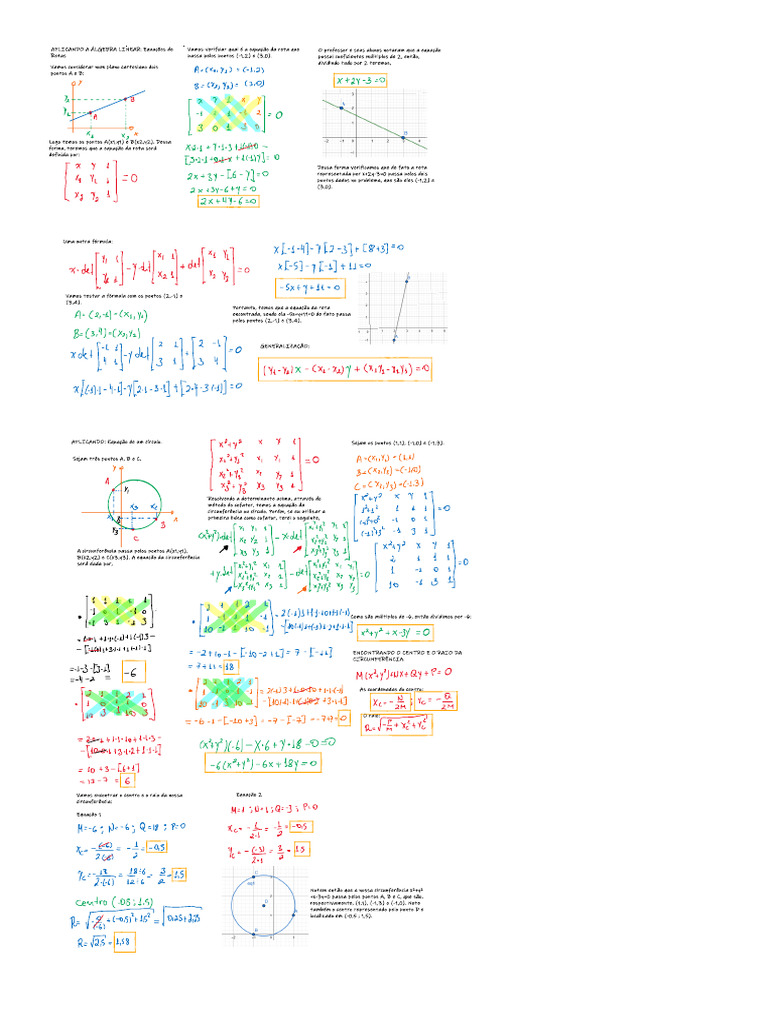 APLICANDO A ÁLGEBRA LINEAR: Equações de
Retas
Vamos considerar num plano cartesiano dois
pontos A e B:
Logo temos os pontos A(x1,y1) e B(x2,y2). Dessa
forma, teremos que a equação da reta será
definida por:
x y 1
x1 y1 1 = 0
x2 y2 1
Vamos verificar qual é a equação da reta que
passa pelos pontos (-1,2) e (3,0).
A=(x1,y1) = (-1,2)
B=(x2,y2) = (3,0)
x y 1 x y
-1 2 1 -1 2 = 0
3 0 1 3 0
2x+3y-[6-y]=0
2x+3y-6+y=0
2x+4y-6=0
O professor e seus alunos notaram que a equação
possui coeficientes múltiplos de 2, então,
dividindo tudo por 2 teremos.
x+2y-3=0
Dessa forma verificamos que de fato a reta
representada por x+2y-3=0 passa pelos dois
pontos dados no problema, que são eles (-1,2) e
(3,0).
Uma outra fórmula:
x·det [y1 1 y2 1] - y·det [x1 1 x2 1] + det [x1 y1 x2 y2] = 0
Vamos testar a fórmula com os pontos (2,-1) e
(3,4).
A=(2,-1)=(x1,y1)
B=(3,4)=(x2,y2)
x det [-1 1 4 1] - y det [2 1 3 1] + [2 -1 3 4] = 0
x[(-1)·1-4·1]-y[2·1-3·1]+[2·4-3·(-1)]=0
x[-1-4]-y[2-3]+[8+3]=0
x[-5]-y[-1]+11=0
-5x+y+11=0
Portanto, temos que a equação da reta
encontrada, sendo ela -5x+y+11=0 de fato passa
pelos pontos (2,-1) e (3,4).
GENERALIZAÇÃO:
(y1-y2)x-(x1-x2)y+(x1y2-x2y1)=0
APLICANDO: Equação de um círculo.
Sejam três pontos A, B e C.
A circunferência passa pelos pontos A(x1,y1),
B(x2,x2) e C(x3,x3). A equação da circunferência
será dada por:
x²+y² x y 1
x1²+y1² x1 y1 1 = 0
x2²+y2² x2 y2 1
x3²+y3² x3 y3 1
Resolvendo a determinante acima, através do
método do cofator, temos a equação da
circunferência ou círculo. Porém, se eu utilizar a
primeira linha como cofator, terei o seguinte,
Sejam os pontos (1,1), (-1,0) e (-1,3).
A=(x1,y1) = (1,1)
B=(x2,y2)=(-1,0)
C=(x3,y3)=(-1,3)
x²+y² x y 1
1²+1² 1 1 1 = 0
(-1)²+0² -1 0 1
(-1)²+3² -1 3 1
x²+y² x y 1
2 1 1 1 = 0
1 -1 0 1
10 -1 3 1
=-1-3-[3-1]
=-4-2 = -6
=-2+10-1-[-10-2+1]=7-[-11]
=7+11=18
=10+3-[6+1]
=13-7=6
(x²+y²)(-6)-x·6+y·18-0=0
-6(x²+y²)-6x+18y=0
Como são múltiplos de -6, então dividimos por -6:
x²+y²+x-3y=0
ENCONTRANDO O CENTRO E O RAIO DA
CIRCUNFERÊNCIA
M(x²+y²)+Nx+Qy+P=0
As coordenadas do centro:
xc=-N/2M yc=-Q/2M
O raio:
Vamos encontrar o centro e o raio da nossa
circunferência:
Equação 1
M=-6; N=-6; Q=18; P=0
xc=-(-6)/2(-6)=-1/2=-0,5
yc=-18/2·(-6)=18:6/12:6=3/2=1,5
centro (-0,5;1,5)
R=√2,5=1,58
Equação 2
M=1; N=1; Q=-3; P=0
xc=-1/2·1=-1/2=-0,5
yc=-(-3)/2·1=3/2=1,5
Notem então que a nossa circunferência x²+y²
+x-3y=0 passa pelos pontos A, B e C, que são,
respectivamente, (1,1), (-1,3) e (-1,0). Note
também o centro representado pelo ponto D e
localizado em (-0,5 ; 1,5).